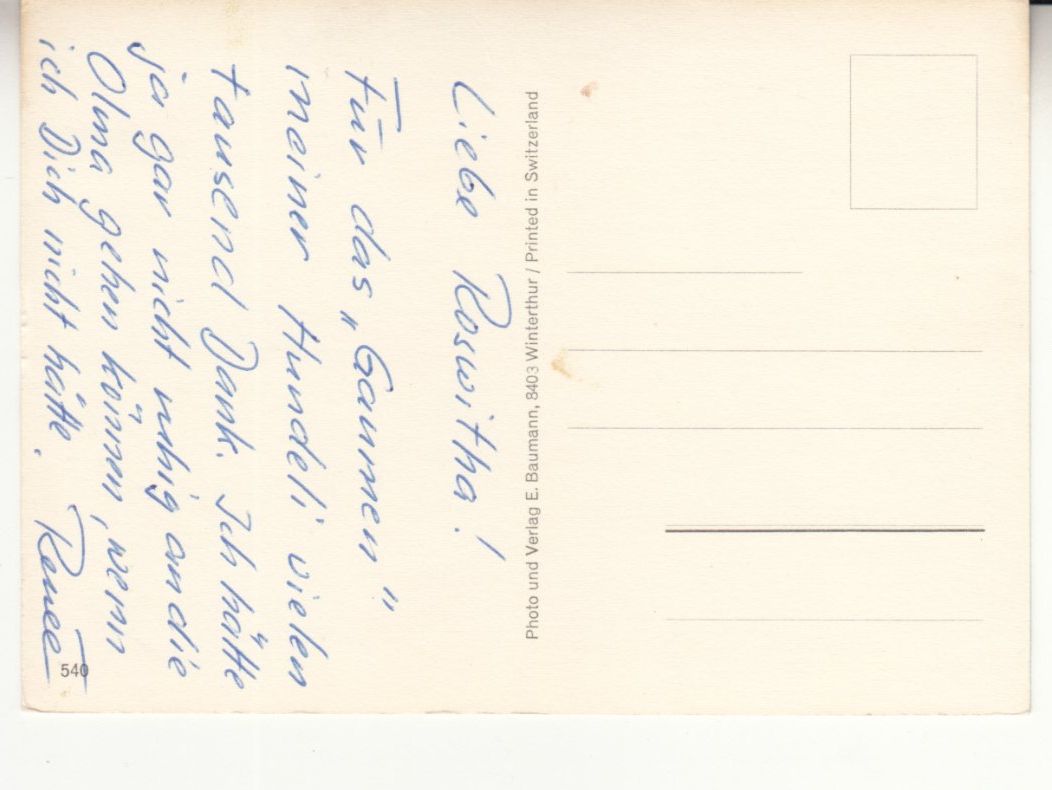 Liebe Roswitha!
Für das „Gaumen"
meiner Hundeli vielen
tausend Dank. Ich hätte
ja gar nicht ruhig an die
Olma gehen können, wenn
ich Dich nicht hätte.
Renée
Photo und Verlag E. Baumann, 8403 Winterthur / Printed in Switzerland
540